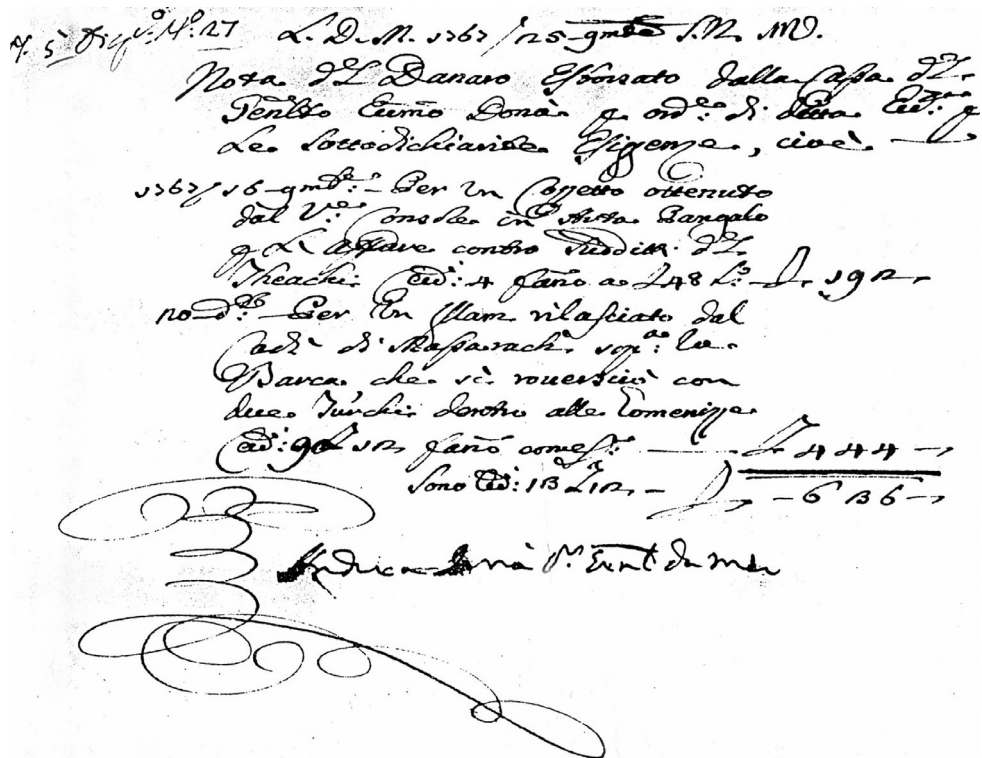 N. 5 Disp.º N.º 27
L. D. M. 1767/25 9mbre S. N. M. D.
Nota d'L Danaro Esborsato dalla Cassa d'L
Eccmo Donà p ordne di detta p
Le Sottodichiarite Esigenze, cioè
1767/16 9mbre Per un Cozzetto ottenuto
dal Ve Console in Arta Pangalo
p L'affare contro Sudditi d'L
Theachi 4 fano a L 48 L. 192
20 do Per Un Ilam rilasciato dal
Cadì di Massarachi sopa la
Barca, che si roversciò con
due Turchi dentro alle Gomenizze
9 L 12 fano L 444
Sono 13 L 12 636
Andrea Donà Pr